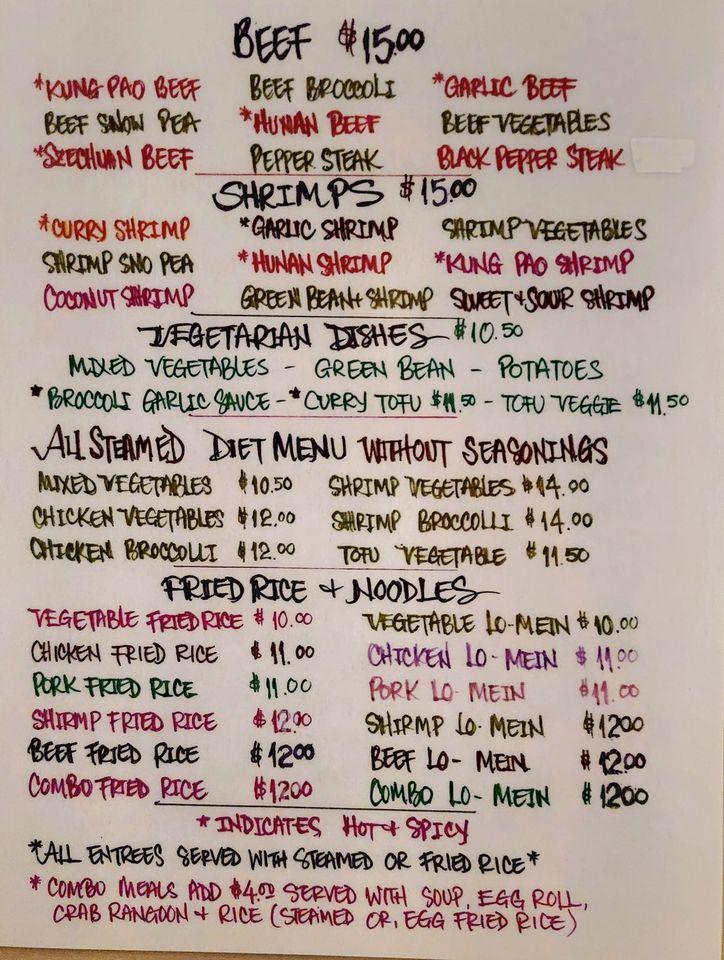 BEEF $15.00
*KUNG PAO BEEF BEEF BROCCOLI *GARLIC BEEF
BEEF SNOW PEA *HUNAN BEEF BEEF VEGETABLES
*SZECHUAN BEEF PEPPER STEAK BLACK PEPPER STEAK
SHRIMPS $15.00
*CURRY SHRIMP *GARLIC SHRIMP SHRIMP VEGETABLES
SHRIMP SNO PEA *HUNAN SHRIMP *KUNG PAO SHRIMP
COCONUT SHRIMP GREEN BEAN+ SHRIMP SWEET+SOUR SHRIMP
VEGETARIAN DISHES $10.50
MIXED VEGETABLES - GREEN BEAN - POTATOES
*BROCCOLI GARLIC SAUCE - *CURRY TOFU $11.50 - TOFU VEGGIE $11.50
ALL STEAMED DIET MENU WITHOUT SEASONINGS
MIXED VEGETABLES $10.50 SHRIMP VEGETABLES $14.00
CHICKEN VEGETABLES $12.00 SHRIMP BROCCOLLI $14.00
CHICKEN BROCCOLLI $12.00 TOFU VEGETABLE $11.50
FRIED RICE + NOODLES
VEGETABLE FRIED RICE $10.00 VEGETABLE LO-MEIN $10.00
CHICKEN FRIED RICE $11.00 CHICKEN LO-MEIN $11.00
PORK FRIED RICE $11.00 PORK LO-MEIN $11.00
SHIRMP FRIED RICE $12.00 SHIRMP LO-MEIN $12.00
BEEF FRIED RICE $12.00 BEEF LO-MEIN $12.00
COMBO FRIED RICE $12.00 COMBO LO-MEIN $12.00
* INDICATES HOT + SPICY
*ALL ENTREES SERVED WITH STEAMED OR FRIED RICE*
* COMBO MEALS ADD $4.00 SERVED WITH SOUP, EGG ROLL,
CRAB RANGOON + RICE (STEAMED OR, EGG FRIED RICE)